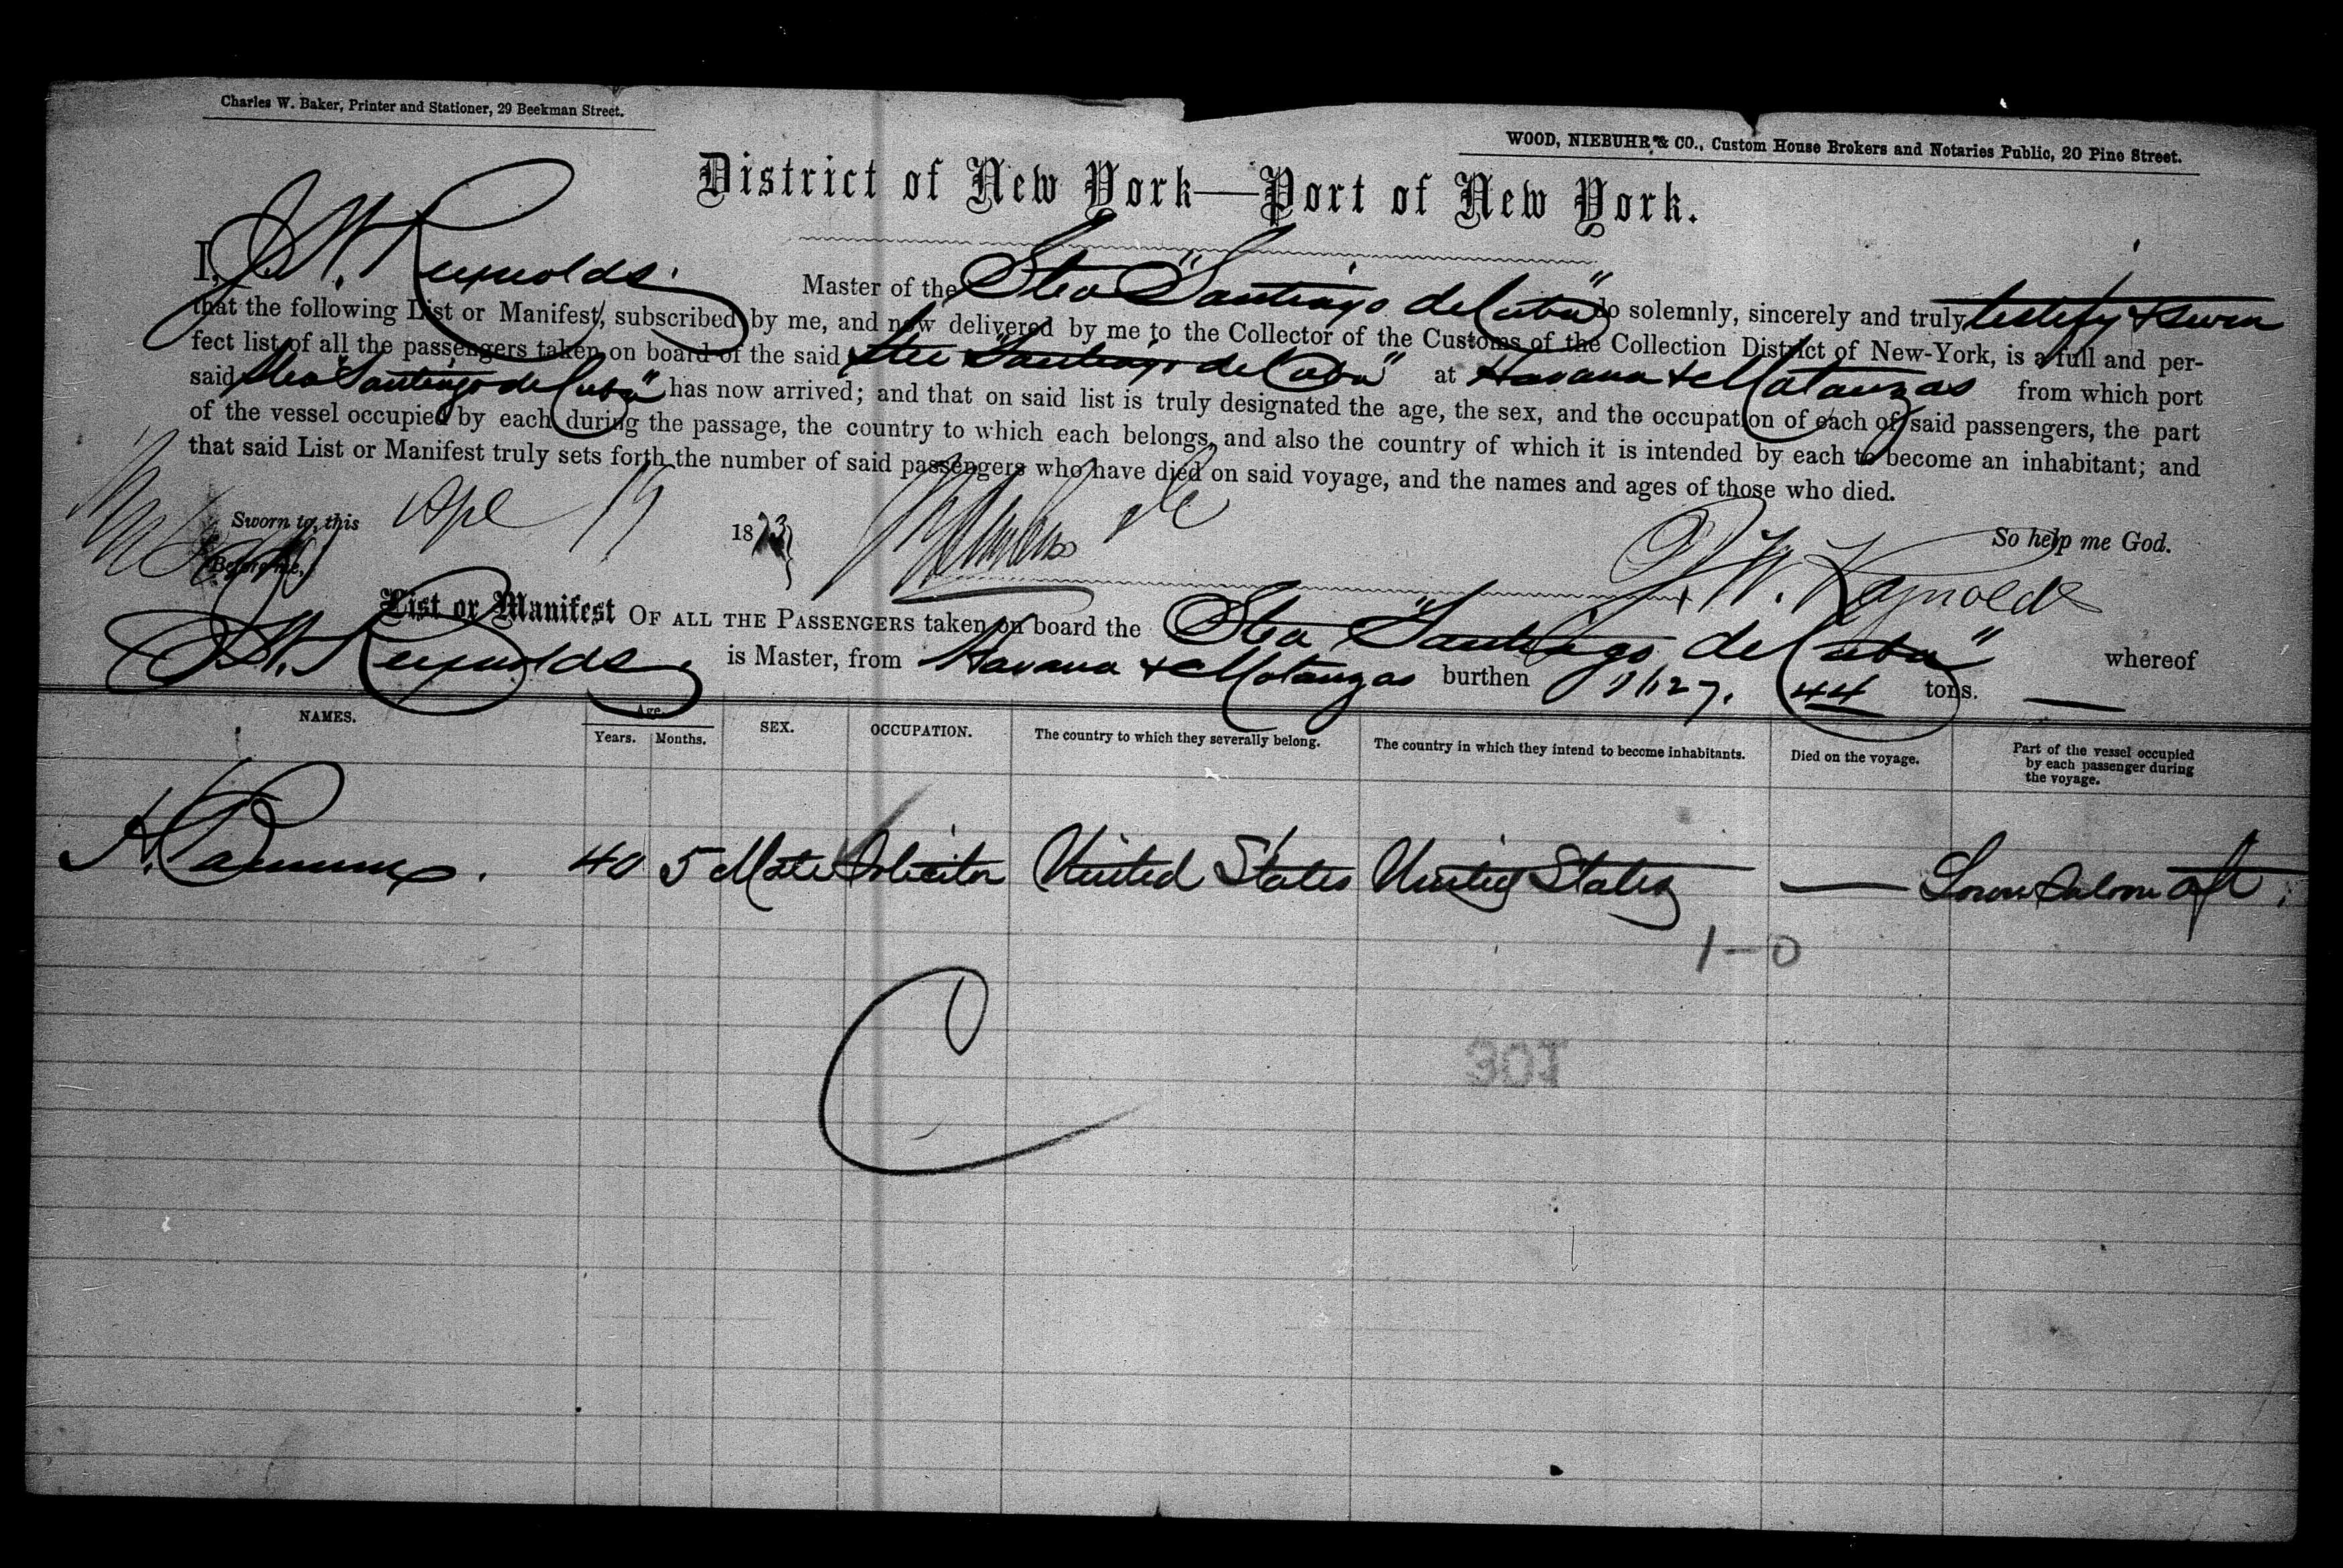 Charles W. Baker, Printer and Stationer, 29 Beekman Street.
WOOD, NIEBUHR & CO., Custom House Brokers and Notaries Public, 20 Pine Street.
District of New York—Port of New York.
I, J. W. Reynolds. Master of the Stea "Santiago de Cuba" do solemnly, sincerely and truly testify & swear
that the following List or Manifest, subscribed by me, and now delivered by me to the Collector of the Customs of the Collection District of New-York, is a full and per-
fect list of all the passengers taken on board of the said "Santiago de Cuba" at Havana & Matanzas from which port
said Stea "Santiago de Cuba" has now arrived; and that on said list is truly designated the age, the sex, and the occupation of each of said passengers, the part
of the vessel occupied by each during the passage, the country to which each belongs, and also the country of which it is intended by each to become an inhabitant; and
that said List or Manifest truly sets forth the number of said passengers who have died on said voyage, and the names and ages of those who died.
Sworn to, this Apl 19 1873 So help me God.
Before me, J. W. Reynolds
List or Manifest OF ALL THE PASSENGERS taken on board the Stea "Santiago de Cuba" whereof
J. W. Reynolds is Master, from Havana & Matanzas burthen 44 tons.
NAMES. Age. SEX. OCCUPATION. The country to which they severally belong. The country in which they intend to become inhabitants. Died on the voyage. Part of the vessel occupied by each passenger during the voyage.
Years. Months.
40 5 Male Solicitor United States United States — Lower Saloon aft.
1-0
C
301